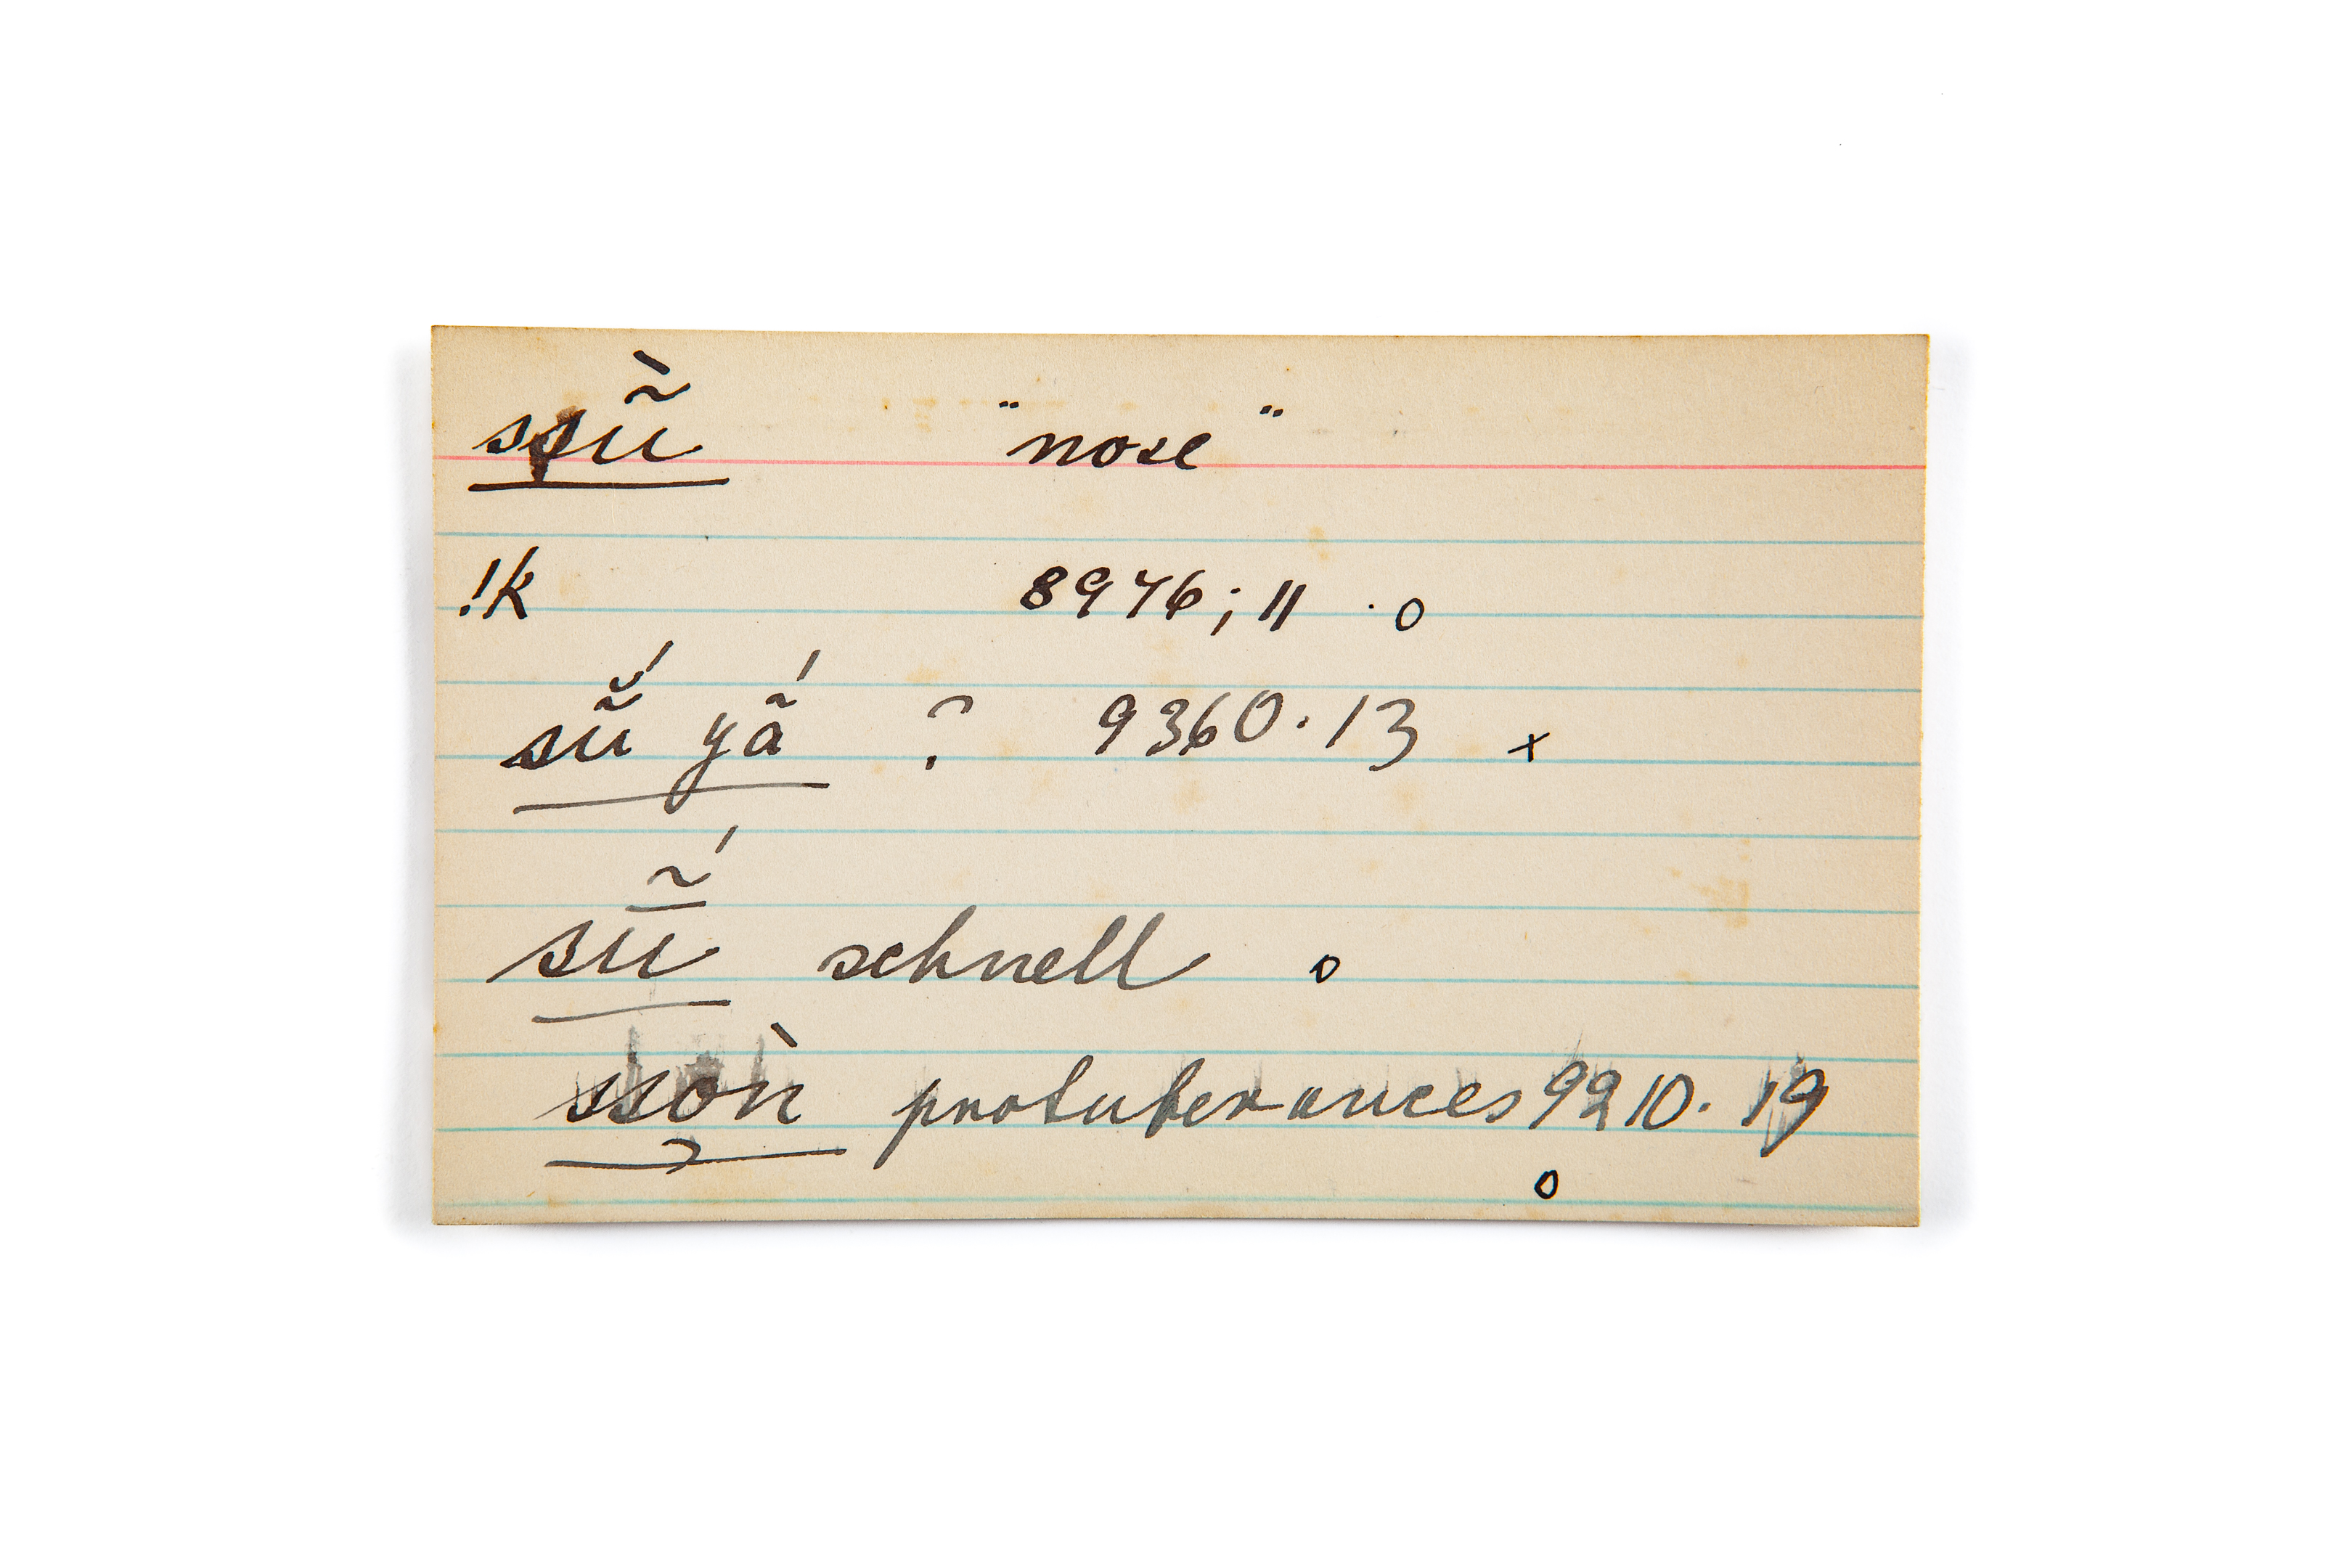 ssũ̀ "nose"
!k 8976; 11 . o
sũ̆́ yã́ ? 9360. 13 x
sū̃́ schnell o
sso̹ǹ protuberances 9210. 19
o